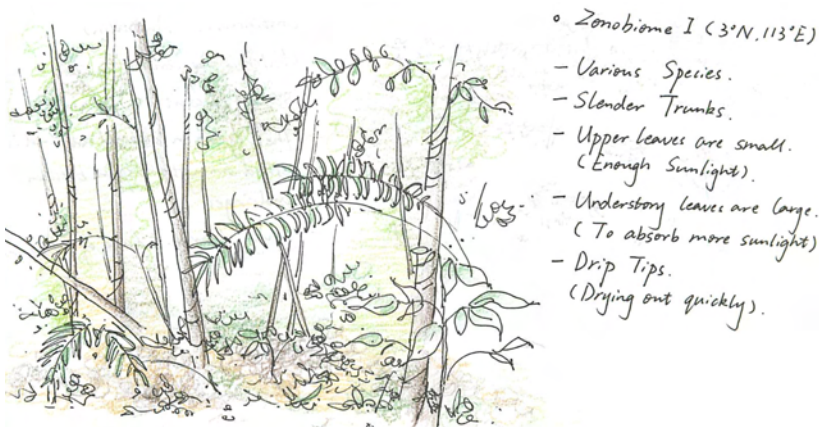 ° Zonobiome I (3°N, 113°E)
- Various Species.
- Slender Trunks.
- Upper leaves are small.
(Enough Sunlight).
- Understory leaves are large.
(To absorb more sunlight)
- Drip Tips.
(Drying out quickly).